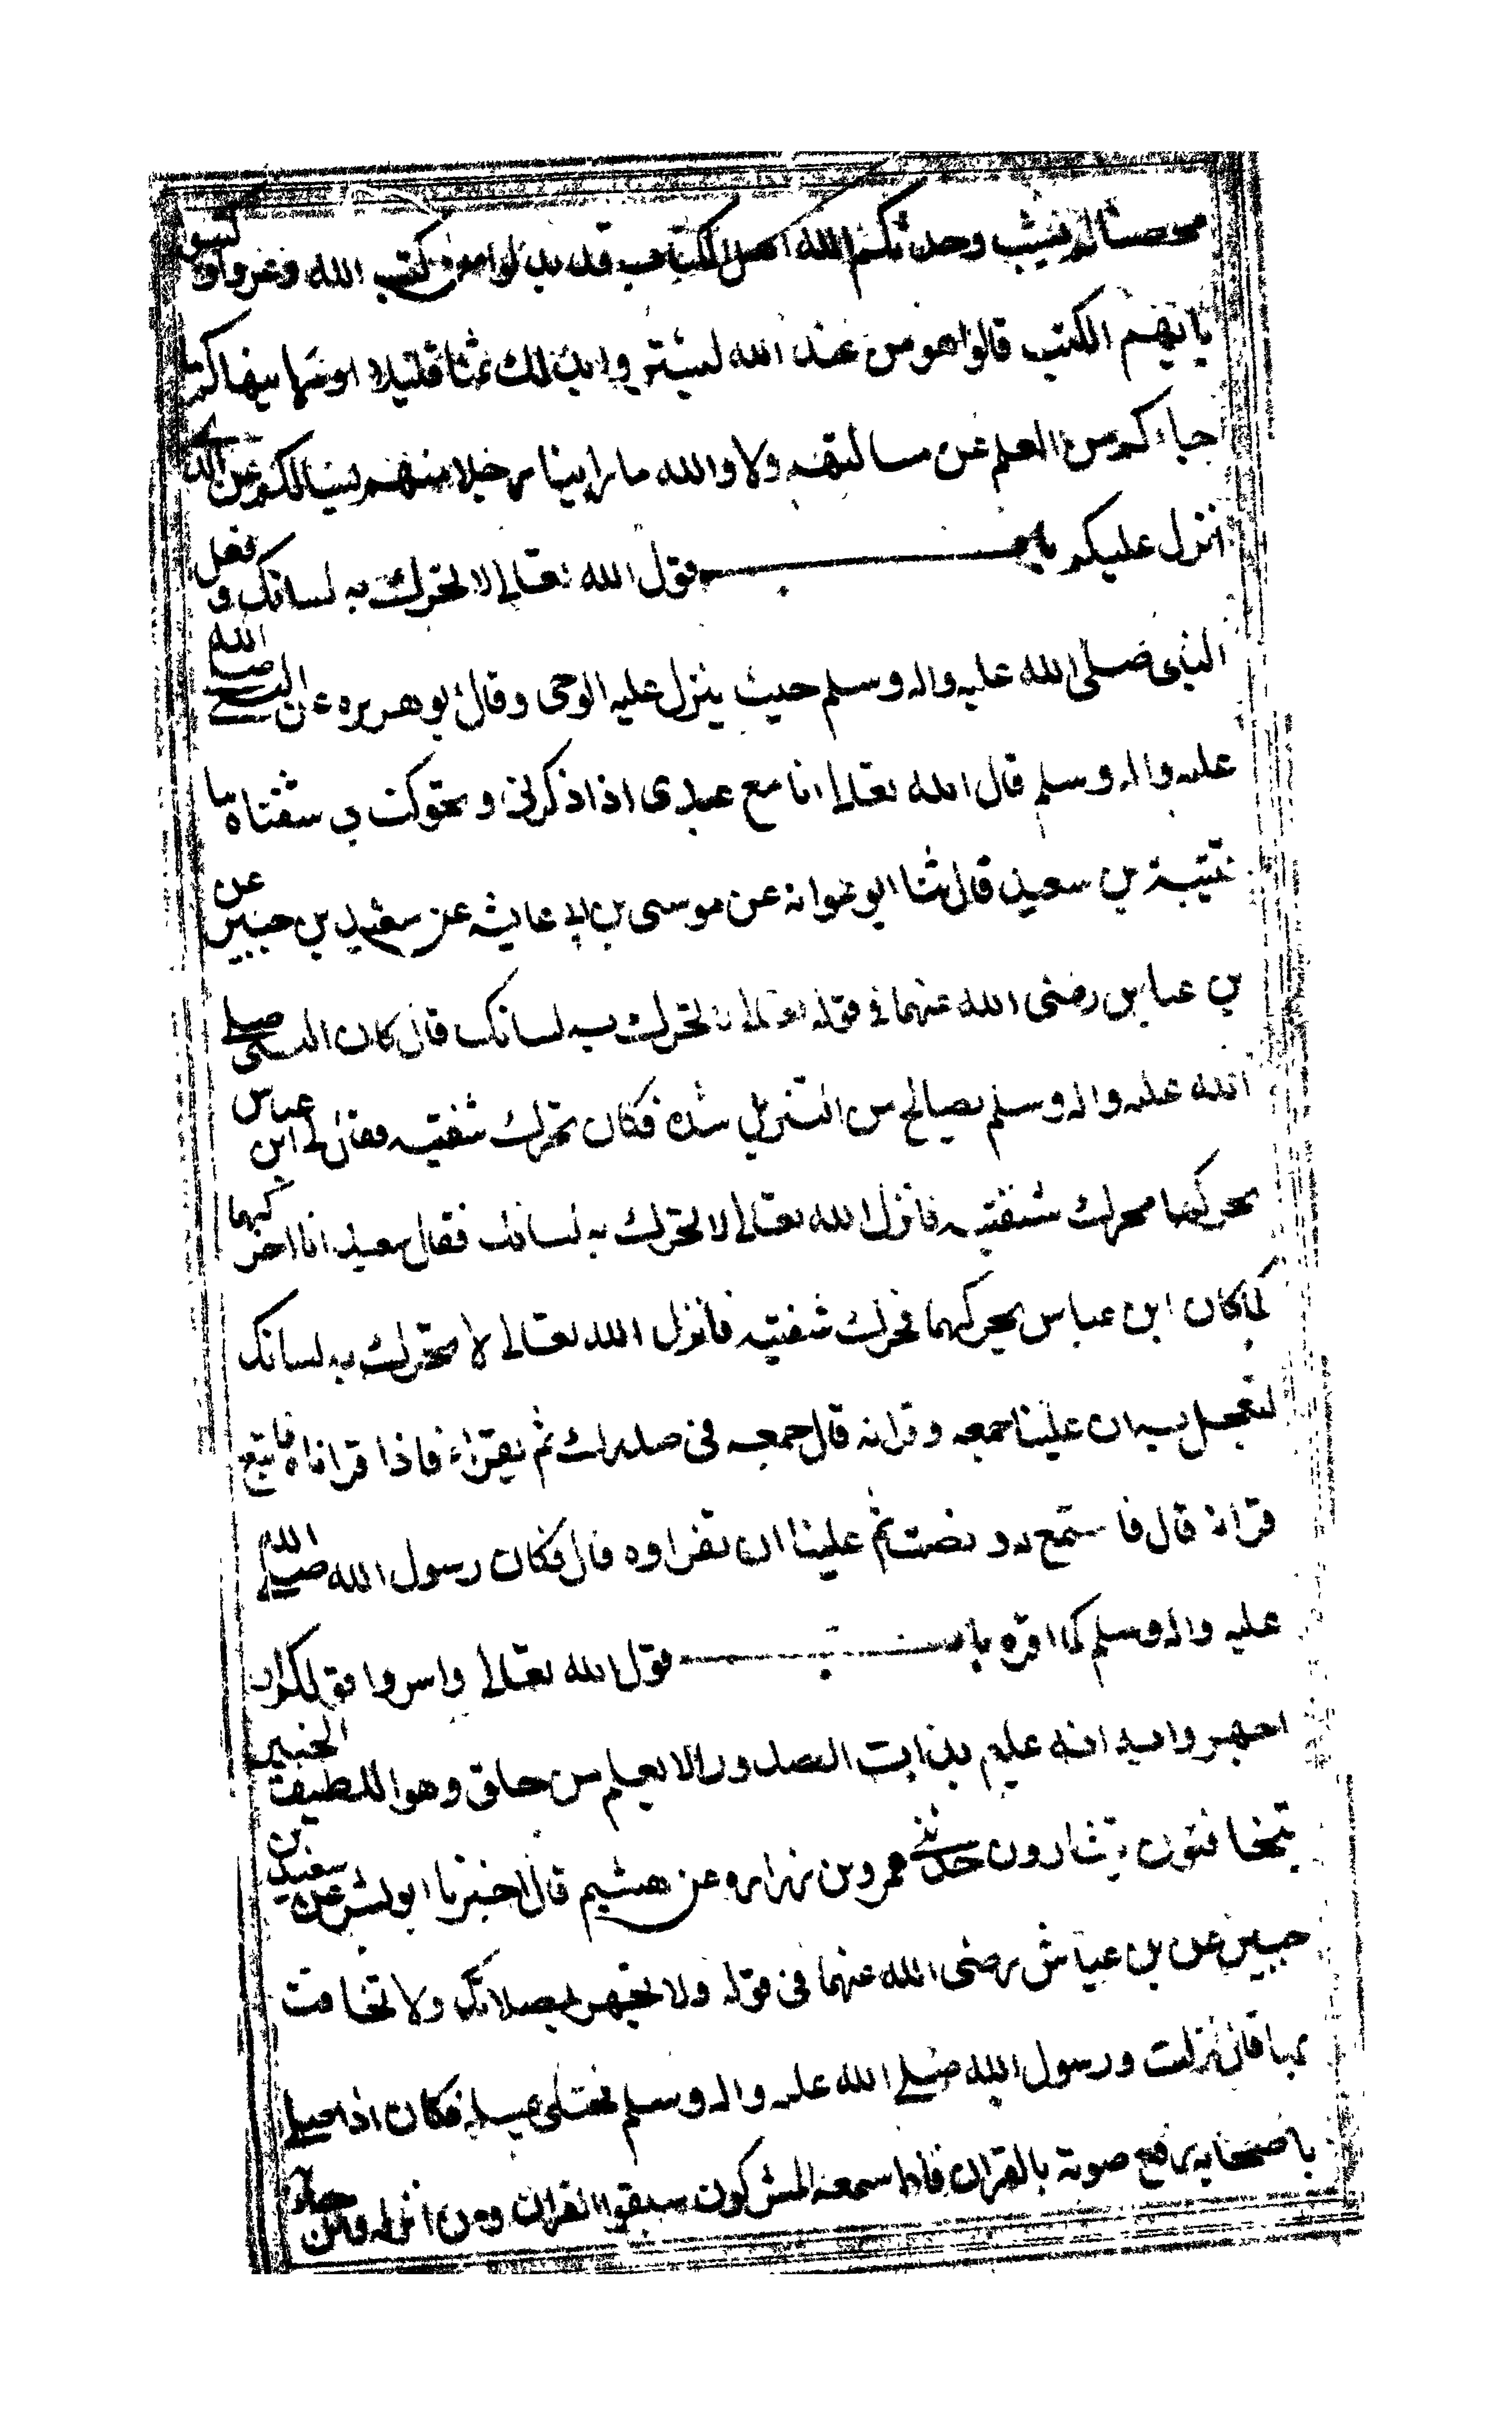 محضا لم يشب وحدثكم الله ان اهل الكتاب قد بدلوا من كتب الله وغيروا وكتبوا
بايديهم الكتب قالوا هو من عند الله ليشتروا بذلك ثمنا قليلا او ينهاكم
ما جاءكم من العلم عن مسالتهم ولا والله ما راينا رجلا منهم يسالكم عن الذي
انزل عليكم باب قول الله تعالى لا تحرك به لسانك و فعل
النبى صلى الله عليه واله وسلم حيث ينزل عليه الوحى وقال ابو هريره عن النبي صلى الله
عليه واله وسلم قال الله تعالى انا مع عبدى اذا ذكرنى وتحركت بي شفتاه ثنا
قتيبة بن سعيد قال ثنا ابو عوانه عن موسى بن ابي عايشه عن سعيد بن جبير عن
بن عباس رضى الله عنهما في قوله تعالى لا تحرك به لسانك قال كان النبى صلى
الله عليه واله وسلم يعالج من التنزيل شده فكان تحرك شفتيه فقال لى ابن عباس
احركهما تحرك شفتيه فانزل الله تعالى لا تحرك به لسانك فقال سعيد انا احركهما
كما كان ابن عباس يحركهما فحرك شفتيه فانزل الله تعالى لا تحرك به لسانك
لتعجل به ان علينا جمعه وقرانه قال جمعه فى صدرك ثم تقراه فاذا قراناه فاتبع
قرانه قال فاستمع له وانصت ثم علينا ان تقراوه قال فكان رسول الله صلى الله
عليه واله وسلم كما اقره باب قول الله تعالى واسروا قولكم او
اجهروا به انه عليم بذات الصدور الا يعلم من خلق وهو اللطيف الخبير
يتخافتون يتسارون حدثني عمرو بن زراره عن هشيم قال اخبرنا ابو بشر عن سعيد بن
جبير عن بن عباس رضى الله عنهما فى قوله ولا تجهر بصلاتك ولا تخافت
بها قال نزلت ورسول الله صلى الله عليه واله وسلم مختفى بمكة فكان اذا صلى
باصحابه رفع صوته بالقران فاذا سمعه المشركون سبوا القران ومن انزله ومن جاء